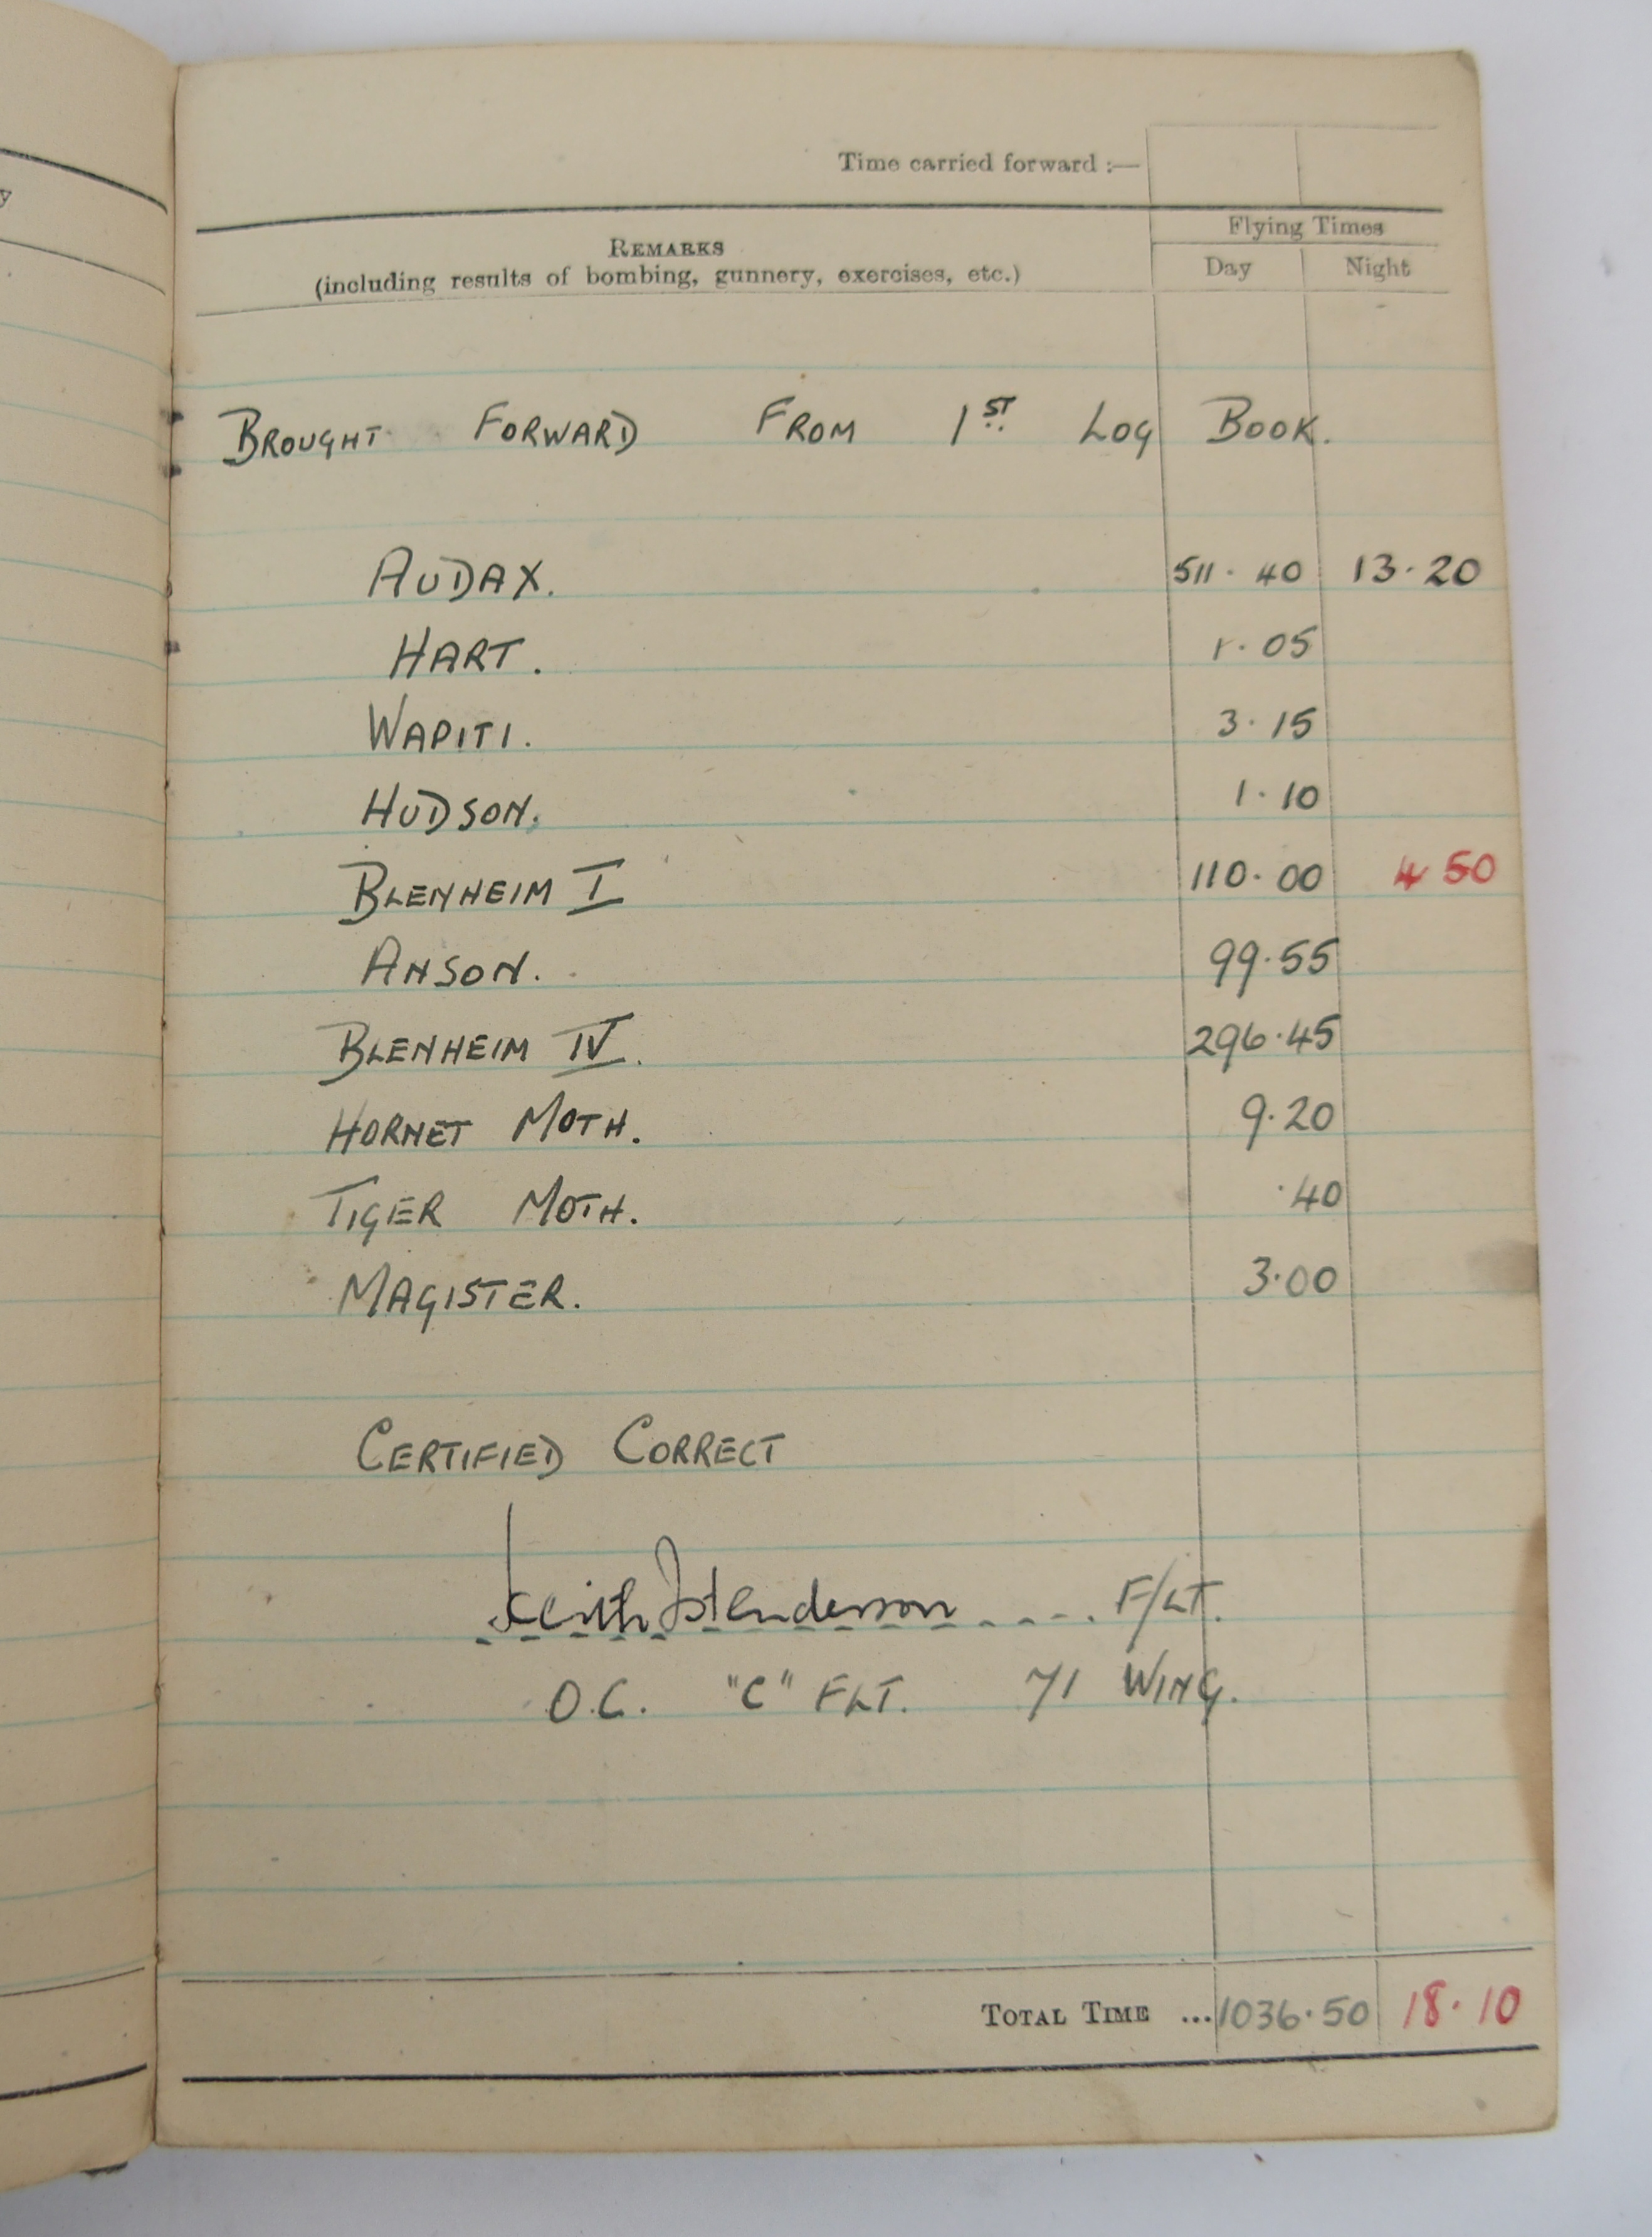 y
Time carried forward :—
Flying Times
REMARKS
(including results of bombing, gunnery, exercises, etc.)
Day Night
BROUGHT FORWARD FROM 1ST LOG BOOK.
AUDAX. 511·40 13·20
HART. 1·05
WAPITI. 3·15
HUDSON. 1·10
BLENHEIM I 110·00 4 50
ANSON. 99·55
BLENHEIM IV. 296·45
HORNET MOTH. 9·20
TIGER MOTH. ·40
MAGISTER. 3·00
CERTIFIED CORRECT
Keith J Henderson .... F/LT.
O.C. "C" FLT. 71 WING.
TOTAL TIME ... 1036·50 18·10